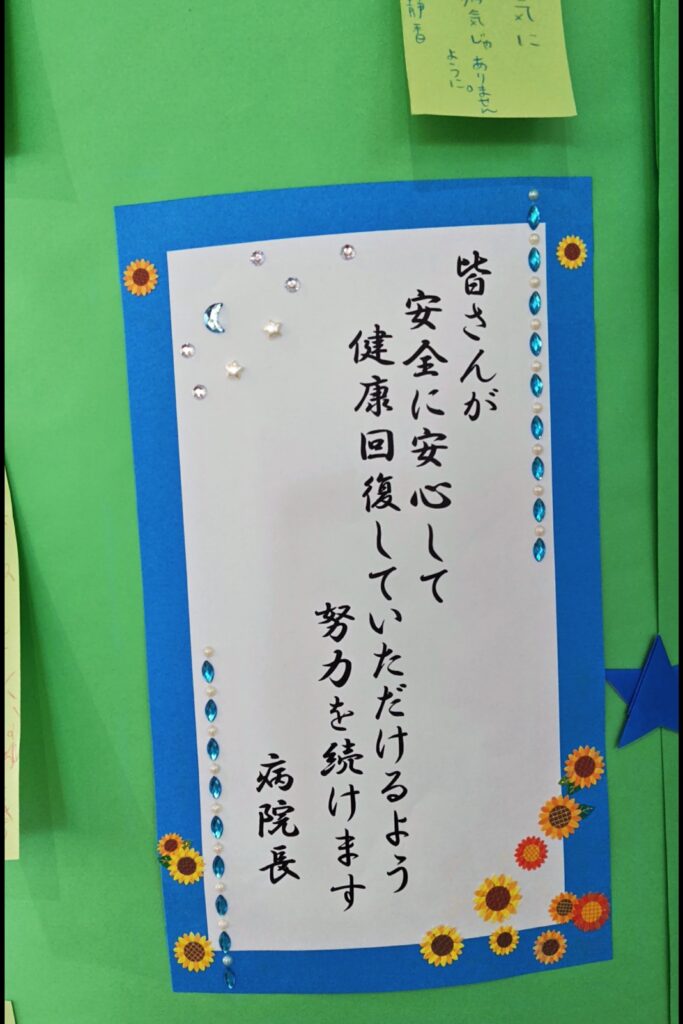 皆さんが
安全に安心して
健康回復していただけるよう
努力を続けます
病院長
気に
気じゃありません
ように。
静香